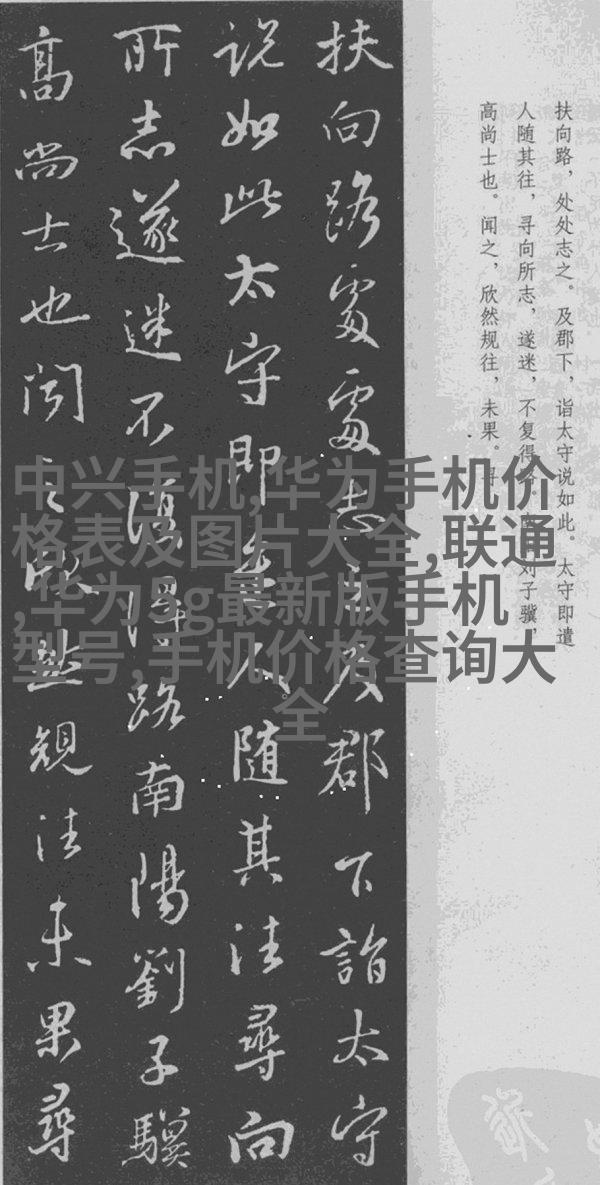 扶向路，处处志之。及郡下，诣太守说如此。太守即遣
人随其往，寻向所志，遂迷，不复得路。南阳刘子骥，
高尚士也。闻之，欣然规往，未果。寻
扶向路處處志之及郡下詣太守
説如此太守即遣人随其往尋向
所志遂迷不復得路南陽劉子驥
高尚士也聞之欣然規往未果尋
中兴手机,华为手机价
格表及图片大全,联通
,华为5g最新版手机
型号,手机价格查询大
全